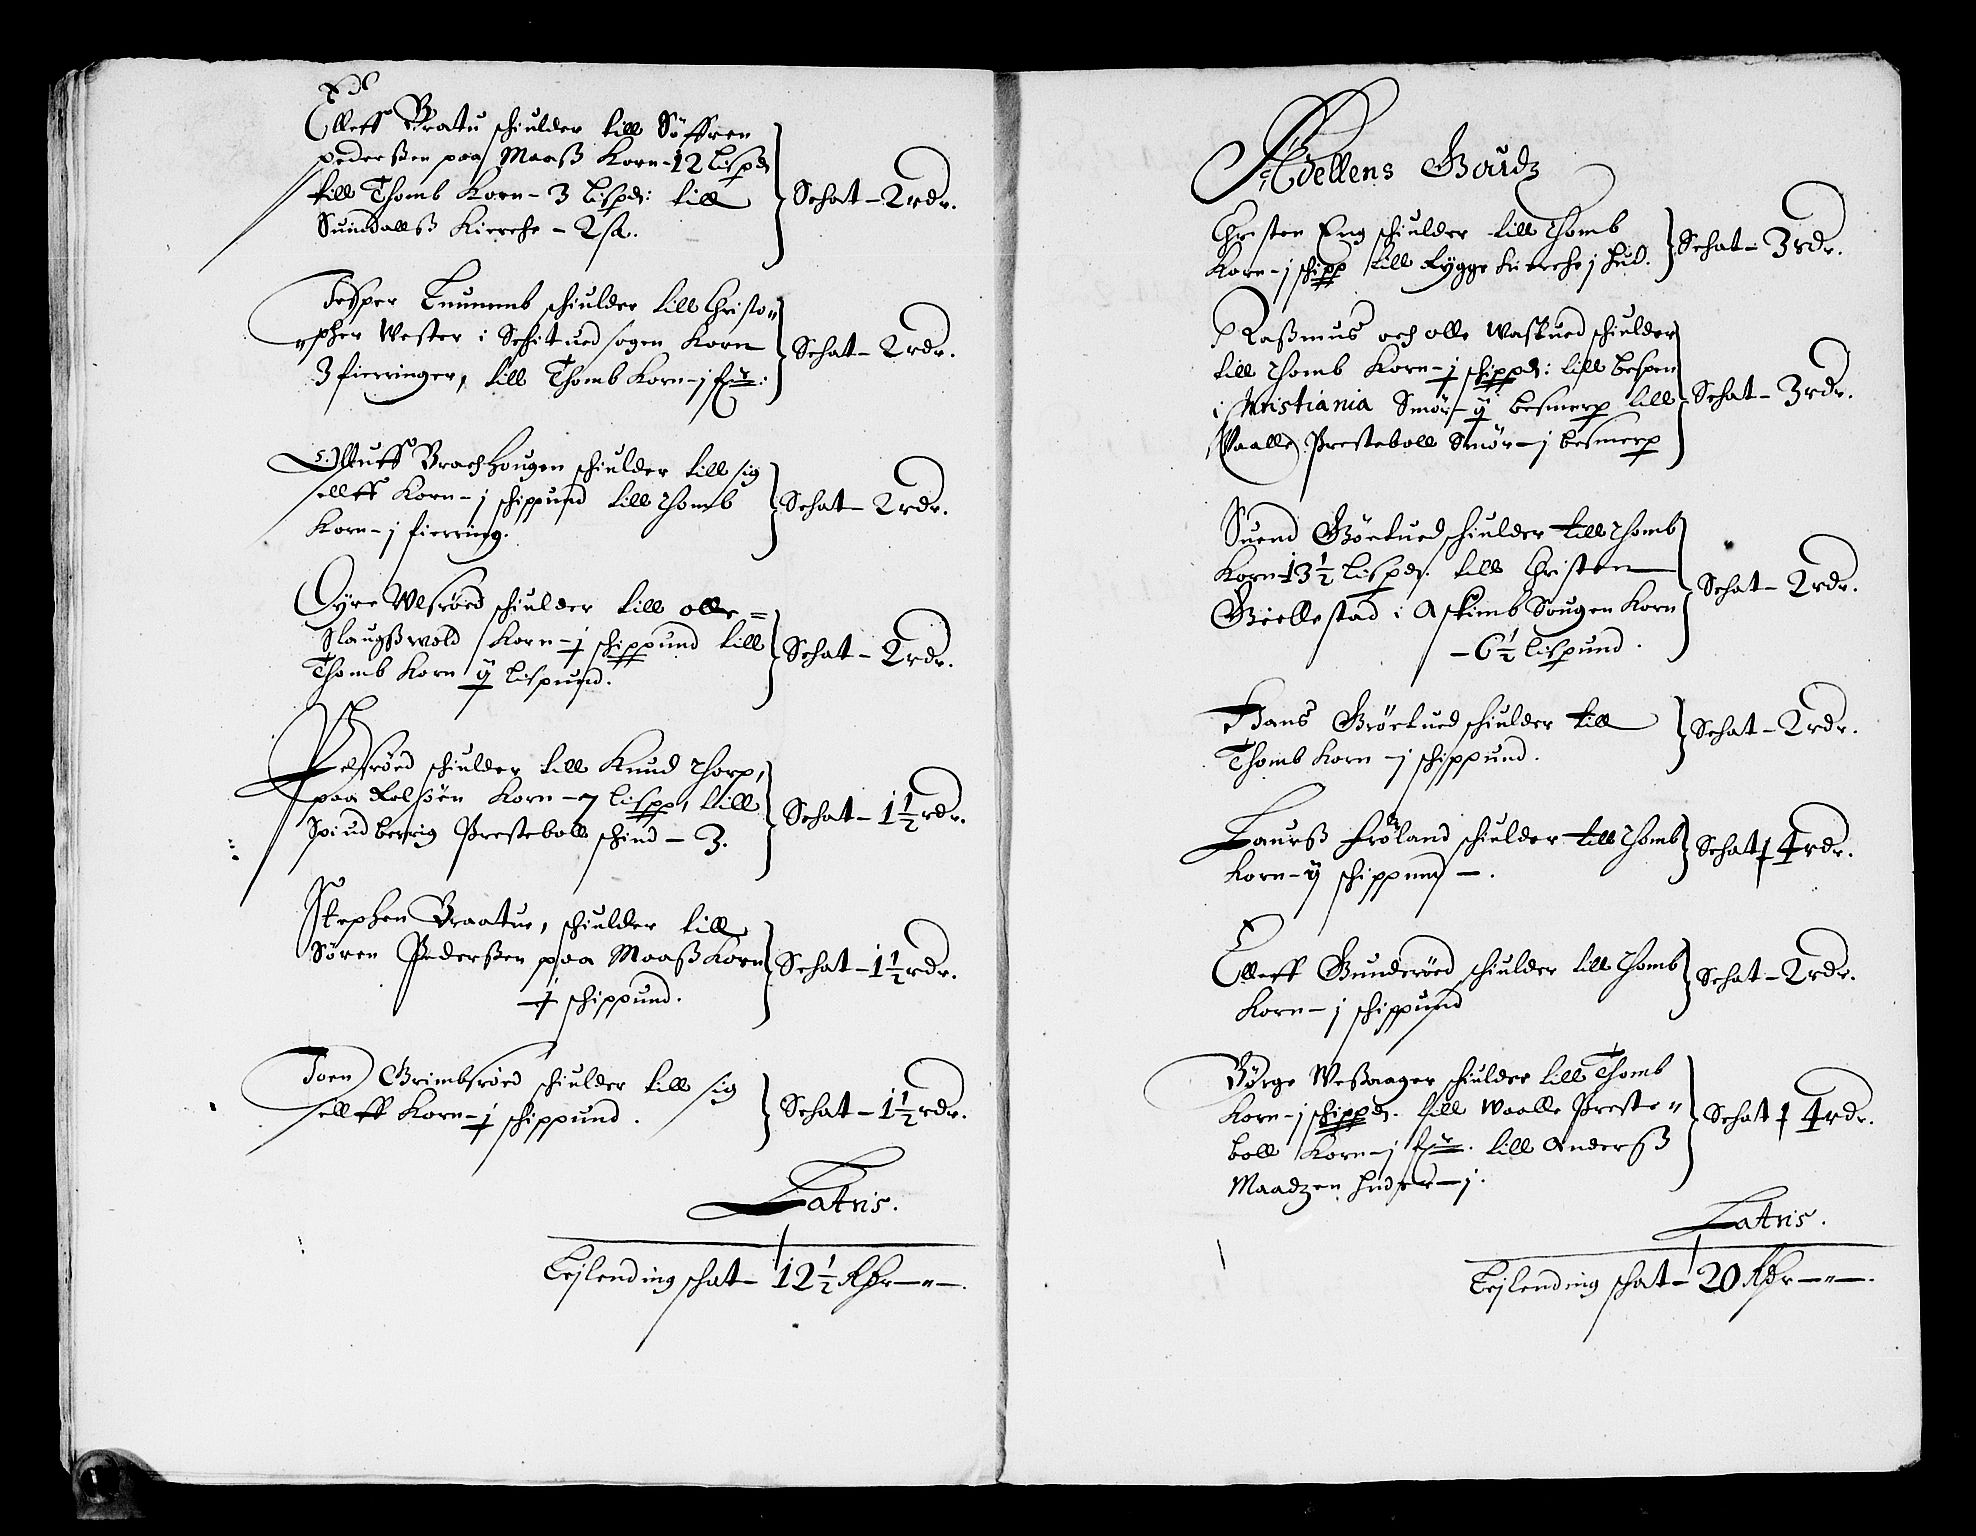 Elleff Bratu schiulder till Söffren
pederßen paa Maaß Korn - 12 lispd
till Thomb Korn - 3 lispd: till
Suindallß Kierche - 2 sk.
Schat - 2 rdr.
Jesper schiulder till Christo„
„pher Wester i Schituedsogen Korn
3 fierringer, till Thomb Korn - j
Schat - 2 rdr.
Olluff Brachhougen schiulder till sig
sellff Korn - j schippund till Thomb
Korn - j fierring.
Schat - 2 rdr.
Gyre Ulsröed schiulder till olle =
Slaugßwold Korn - j schippund till
Thomb Korn ij lispund.
Schat - 2 rdr.
schiulder till Knud Thorp,
paa Rolsöen Korn - 7 lispp, till
Spiudberrig Presteboll schind - 3.
Schat - 1½ rdr.
Stephen Braatue, schiulder till
Sören Pederßen paa Maaß Korn
- j schippund.
Schat - 1½ rdr.
Joen Grimbsröed schiulder till sig
sellff Korn - j schippund.
Schat - 1½ rdr.
Latris.
Lejlending schat - 12½ Rdr - „ -.
Adellens Goudz
Christen Eng schiulder till Thomb
Korn - j schipp till Rygge Kierche j hud.
Schat - 3 rdr.
Raßmus och olle Waskued schiulder
till Thomb Korn - j schippd: till Bespen
i Christiania Smör - ij besmerp till
Waalle Presteboll Smör - j besmerp
Schat - 3 rdr.
Suend Grörtued schiulder till Thomb
Korn - 13½ lispd. till Christen
Giellestad i Askimb Sougen Korn
- 6½ lispund.
Schat - 2 rdr.
Hans Grörtued schiulder till
Thomb Korn - j schippund.
Schat - 2 rdr.
Laurß Fröland schiulder till Thomb
Korn - ij schippund -.
Schat - 4 rdr.
Elleff Gunderöed schiulder till Thomb
Korn - j schippund
Schat - 2 rdr.
Börge Weßaager schiulder till Thomb
Korn - j schippd. till Waalle Preste„
boll Korn - j till Anderß
Maadzen huder - j.
Schat - 4 rdr.
Latris.
Lejlending schat - 20 Rdr - „ -.